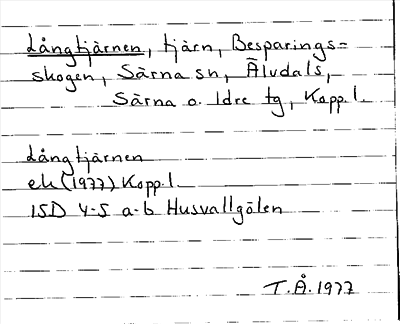 Långtjärnen, tjärn, Besparings=
skogen, Särna sn, Älvdals,
Särna o. Idre tg, Kopp. l.
Långtjärnen
ek (1977) Kopp. l.
15D 4-5 a-b Husvallgölen
T.Å. 1977